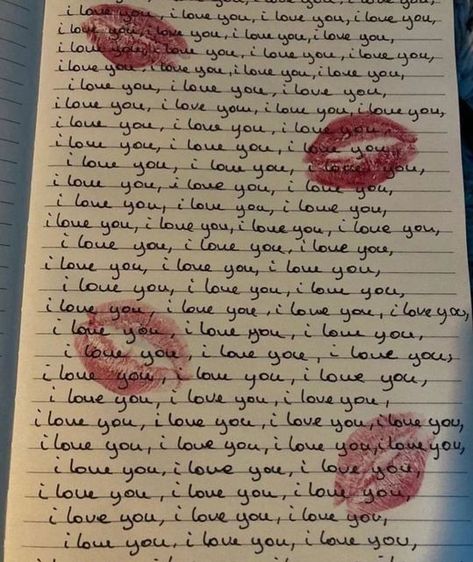 i love you, i love you, i love you, i love you,
i love you, i love you, i love you, i love you,
i love you, i love you, i love you, i love you,
i love you, i love you, i love you, i love you,
i love you, i love you, i love you,
i love you, i love you, i love you, i love you,
i love you, i love you, i love you,
i love you, i love you, i love you,
i love you, i love you, i love you,
i love you, i love you, i love you,
i love you, i love you, i love you,
i love you, i love you, i love you, i love you,
i love you, i love you, i love you,
i love you, i love you, i love you,
i love you, i love you, i love you,
i love you, i love you, i love you, i love you,
i love you, i love you, i love you,
i love you, i love you, i love you,
i love you, i love you, i love you,
i love you, i love you, i love you,
i love you, i love you, i love you, i love you,
i love you, i love you, i love you, i love you,
i love you, i love you, i love you,
i love you, i love you, i love you,
i love you, i love you, i love you,
i love you, i love you, i love you,